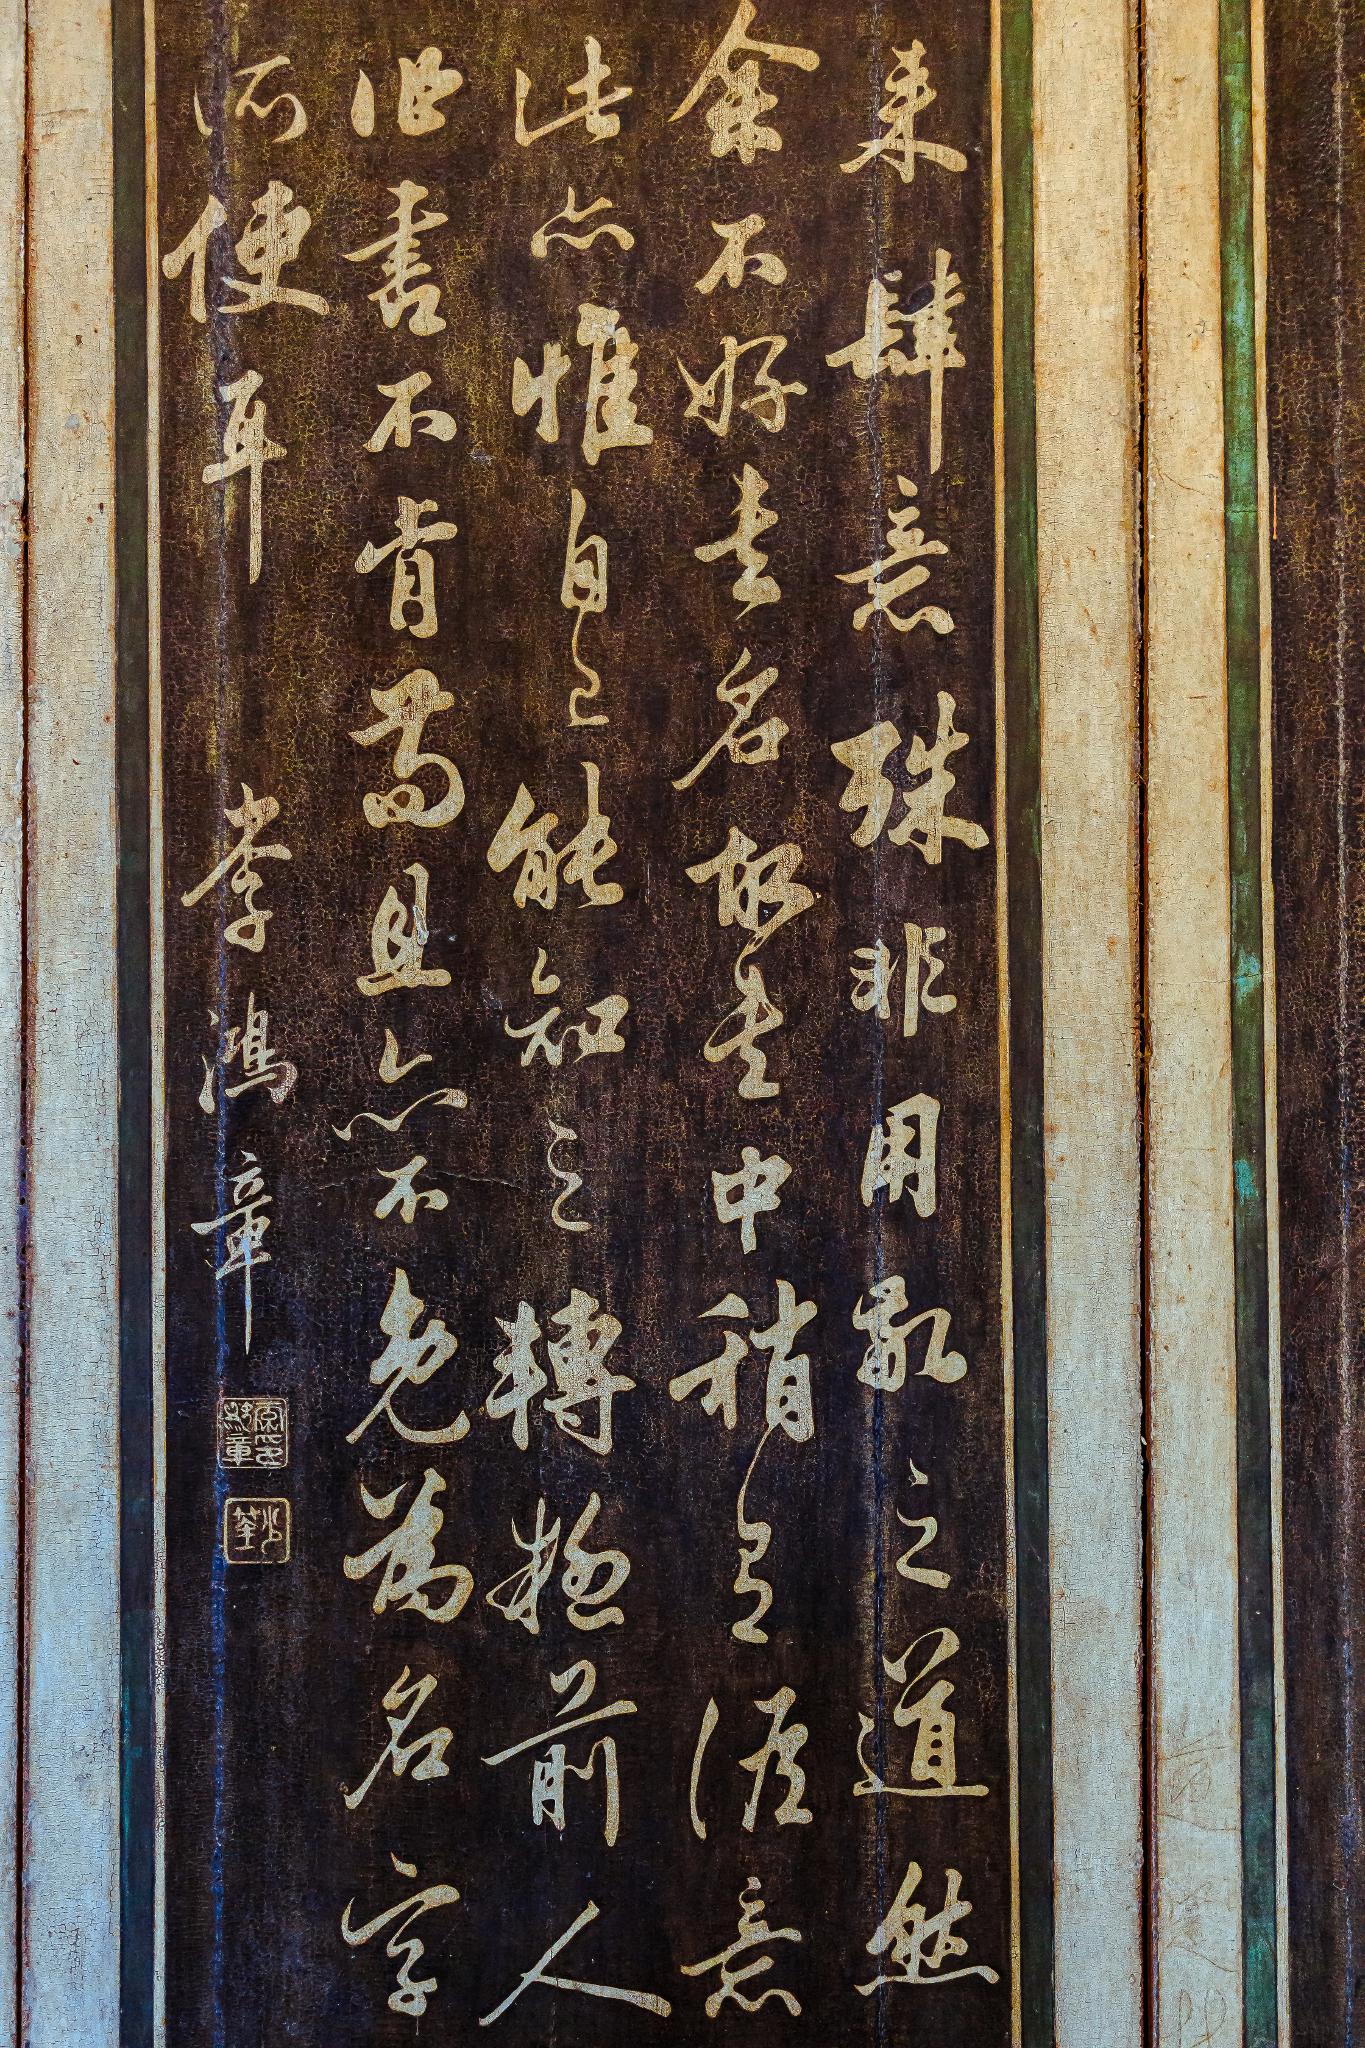 来肆意殊非用敬之道然
余不好書名故書中稍有淡意
此亦惟自己能知之轉想前人
作書不肯苟且亦不免為名字
所使耳 李鴻章
少荃